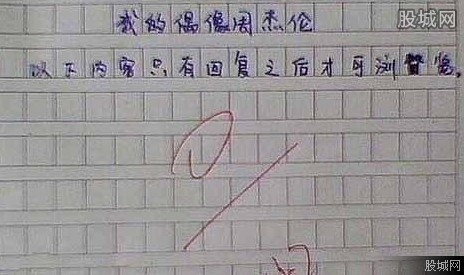 股城网
我的偶像周杰伦
以下内容只有回复之后才可浏览。
股城网